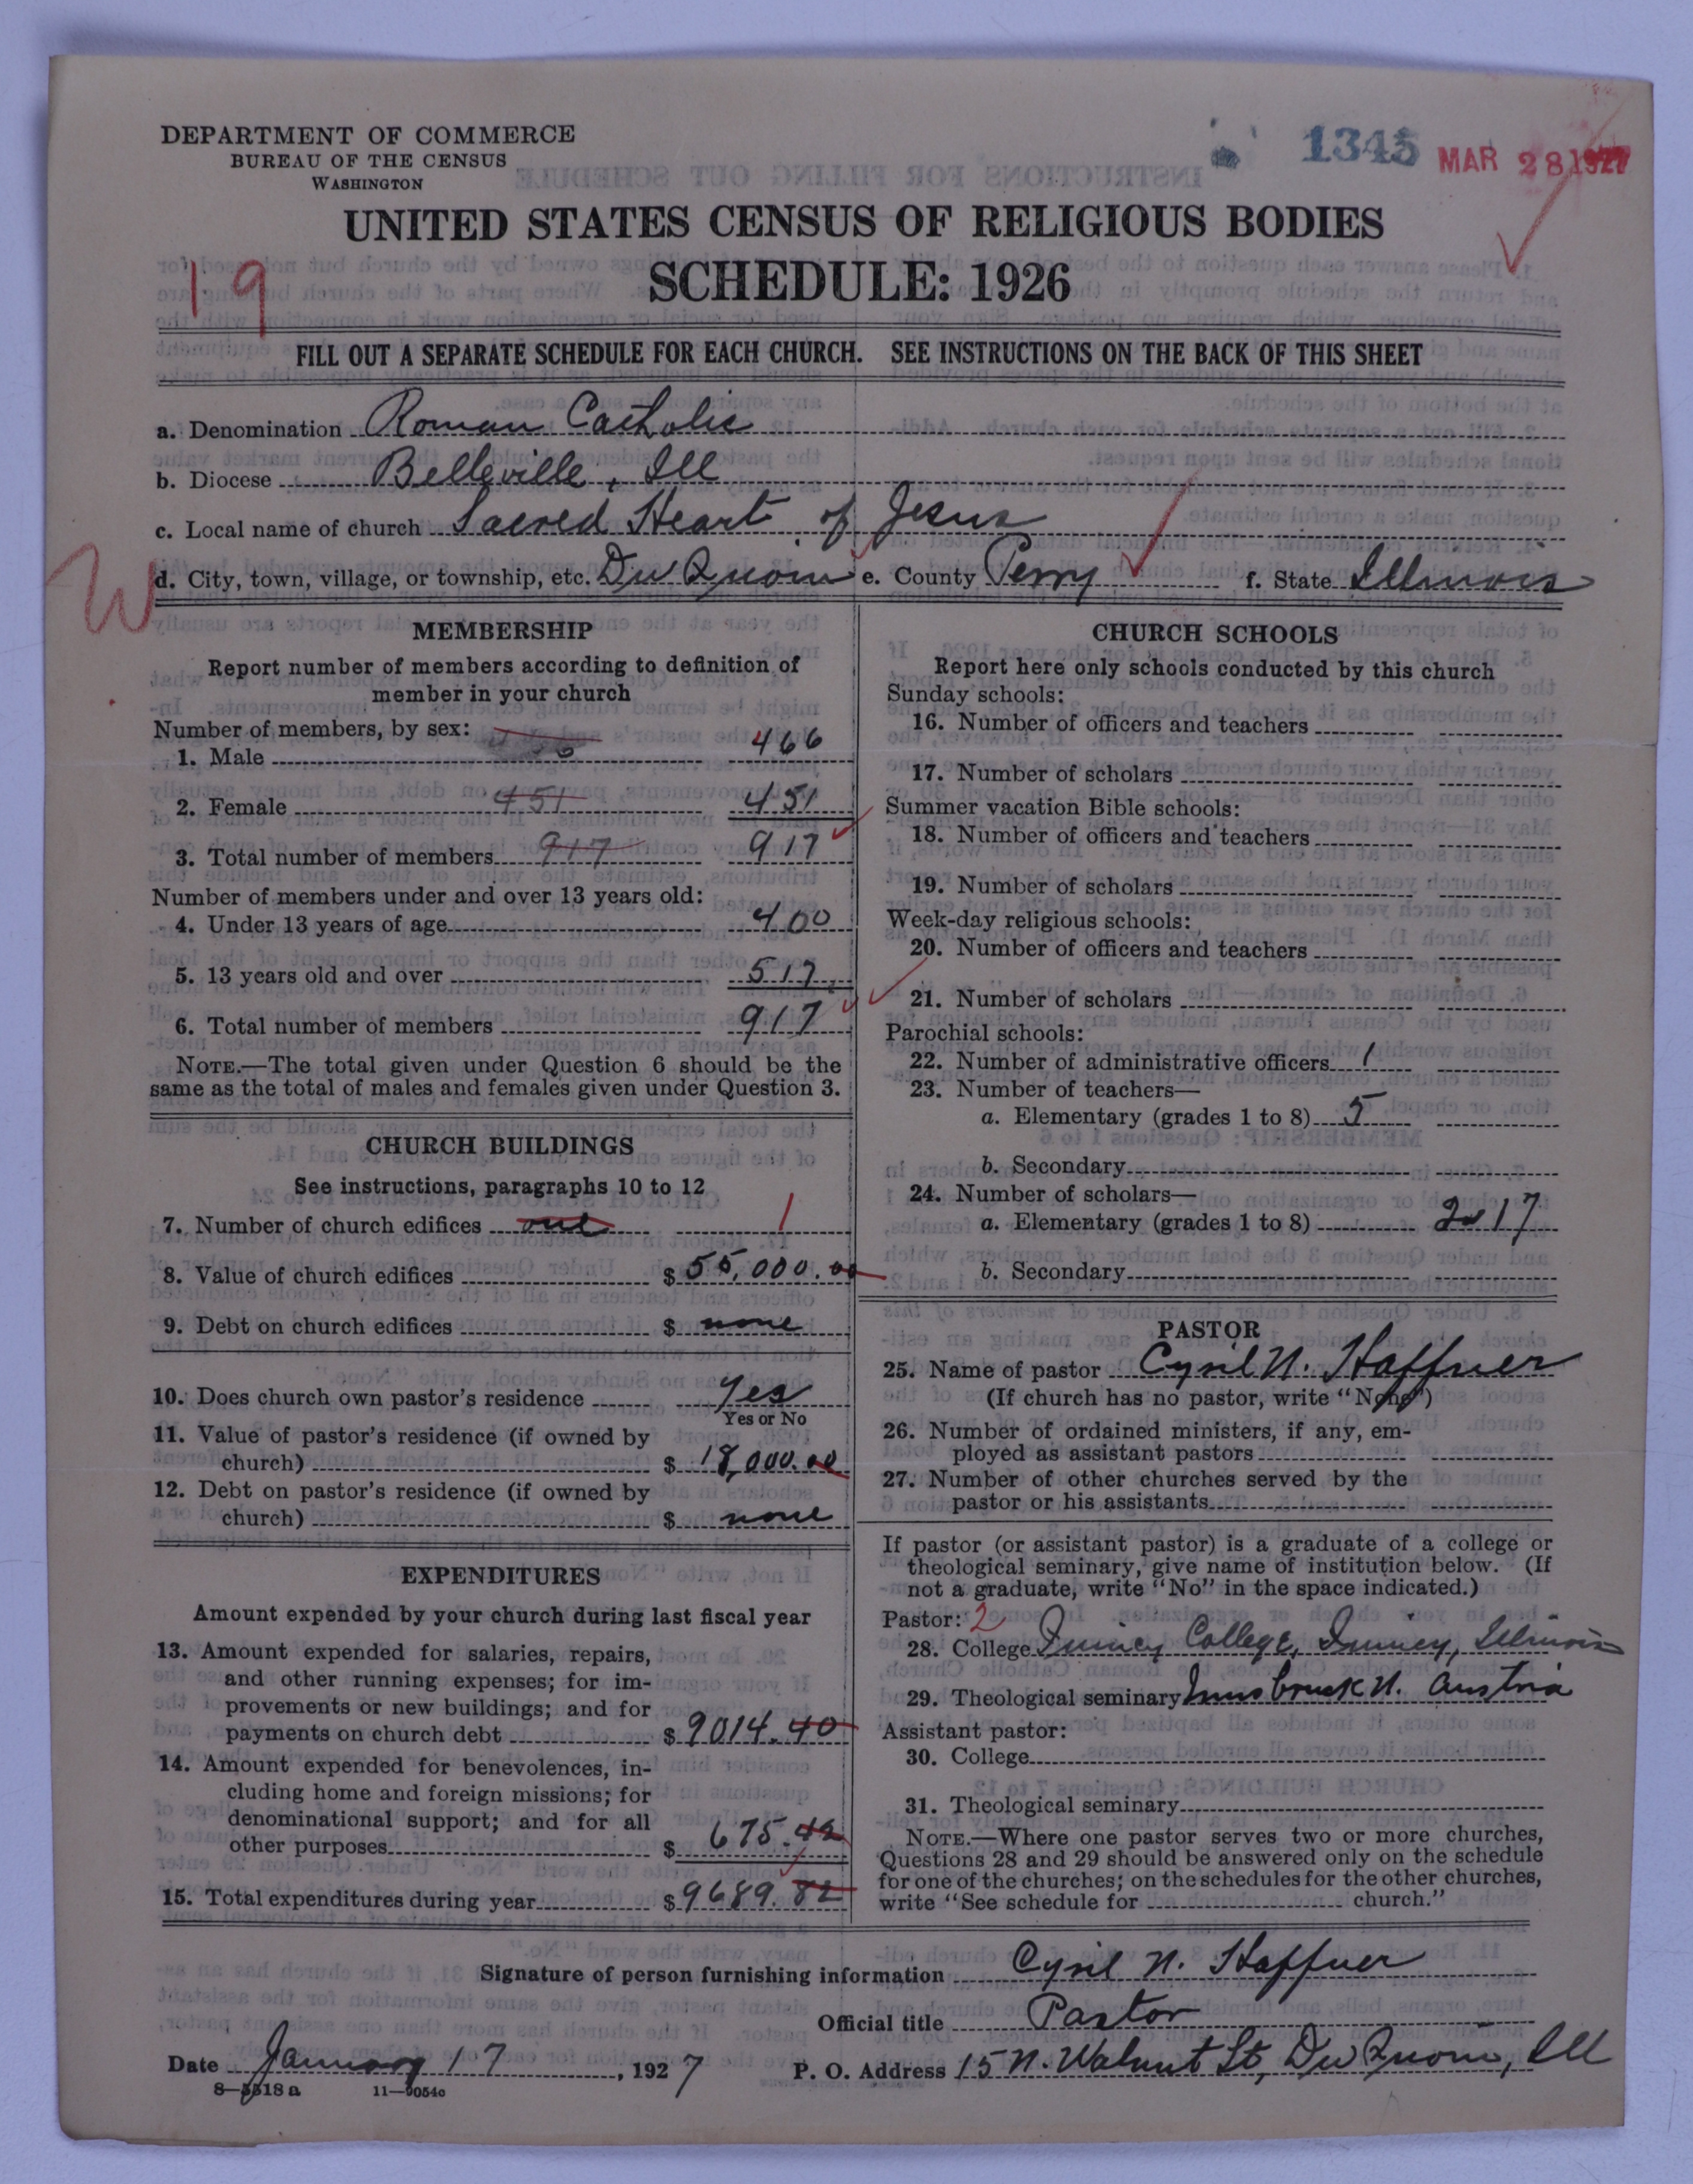 DEPARTMENT OF COMMERCE
BUREAU OF THE CENSUS
WASHINGTON
1345 MAR 28 1927
UNITED STATES CENSUS OF RELIGIOUS BODIES
SCHEDULE: 1926
19
FILL OUT A SEPARATE SCHEDULE FOR EACH CHURCH. SEE INSTRUCTIONS ON THE BACK OF THIS SHEET
a. Denomination Roman Catholic
b. Diocese Belleville, Ill
c. Local name of church Sacred Heart of Jesus
W
d. City, town, village, or township, etc. Du Quoin e. County Perry f. State Illinois
MEMBERSHIP
Report number of members according to definition of
member in your church
Number of members, by sex:
1. Male 466
2. Female 451 451
3. Total number of members 917 917
Number of members under and over 13 years old:
4. Under 13 years of age 400
5. 13 years old and over 517
6. Total number of members 917
NOTE.—The total given under Question 6 should be the
same as the total of males and females given under Question 3.
CHURCH BUILDINGS
See instructions, paragraphs 10 to 12
7. Number of church edifices one 1
8. Value of church edifices $ 55,000.00
9. Debt on church edifices $ none
10. Does church own pastor's residence Yes
Yes or No
11. Value of pastor's residence (if owned by
church) $ 18,000.00
12. Debt on pastor's residence (if owned by
church) $ none
EXPENDITURES
Amount expended by your church during last fiscal year
13. Amount expended for salaries, repairs,
and other running expenses; for im-
provements or new buildings; and for
payments on church debt $ 9014.40
14. Amount expended for benevolences, in-
cluding home and foreign missions; for
denominational support; and for all
other purposes $ 675.42
15. Total expenditures during year $ 9689.82
CHURCH SCHOOLS
Report here only schools conducted by this church
Sunday schools:
16. Number of officers and teachers
17. Number of scholars
Summer vacation Bible schools:
18. Number of officers and teachers
19. Number of scholars
Week-day religious schools:
20. Number of officers and teachers
21. Number of scholars
Parochial schools:
22. Number of administrative officers 1
23. Number of teachers—
a. Elementary (grades 1 to 8) 5
b. Secondary
24. Number of scholars—
a. Elementary (grades 1 to 8) 217
b. Secondary
PASTOR
25. Name of pastor Cyril N. Haffner
(If church has no pastor, write "None")
26. Number of ordained ministers, if any, em-
ployed as assistant pastors
27. Number of other churches served by the
pastor or his assistants
If pastor (or assistant pastor) is a graduate of a college or
theological seminary, give name of institution below. (If
not a graduate, write "No" in the space indicated.)
Pastor: 2
28. College Quincy College, Quincy, Illinois
29. Theological seminary Innsbruck U. Austria
Assistant pastor:
30. College
31. Theological seminary
NOTE.—Where one pastor serves two or more churches,
Questions 28 and 29 should be answered only on the schedule
for one of the churches; on the schedules for the other churches,
write "See schedule for church."
Signature of person furnishing information Cyril N. Haffner
Official title Pastor
Date January 17, 1927 P. O. Address 15 N. Walnut St, Du Quoin, Ill
8—5518 a 11—9054c